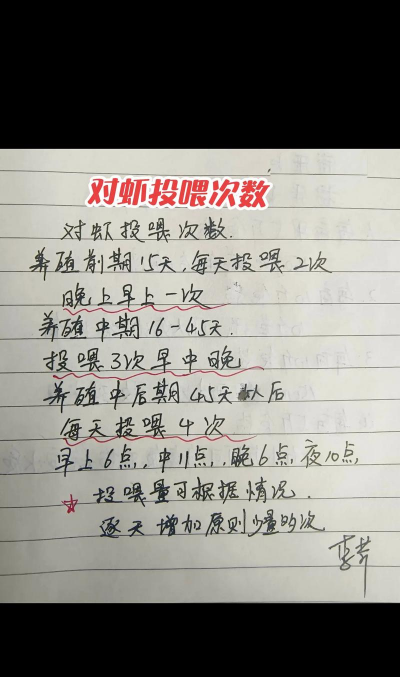 对虾投喂次数
对虾投喂次数.
养殖前期15天,每天投喂2次
晚上早上一次
养殖中期16-45天.
投喂3次早中晚
养殖中后期45天以后
每天投喂4次
早上6点,中11点,晚6点,夜10点,
投喂量可根据情况.
逐天增加原则少量的次